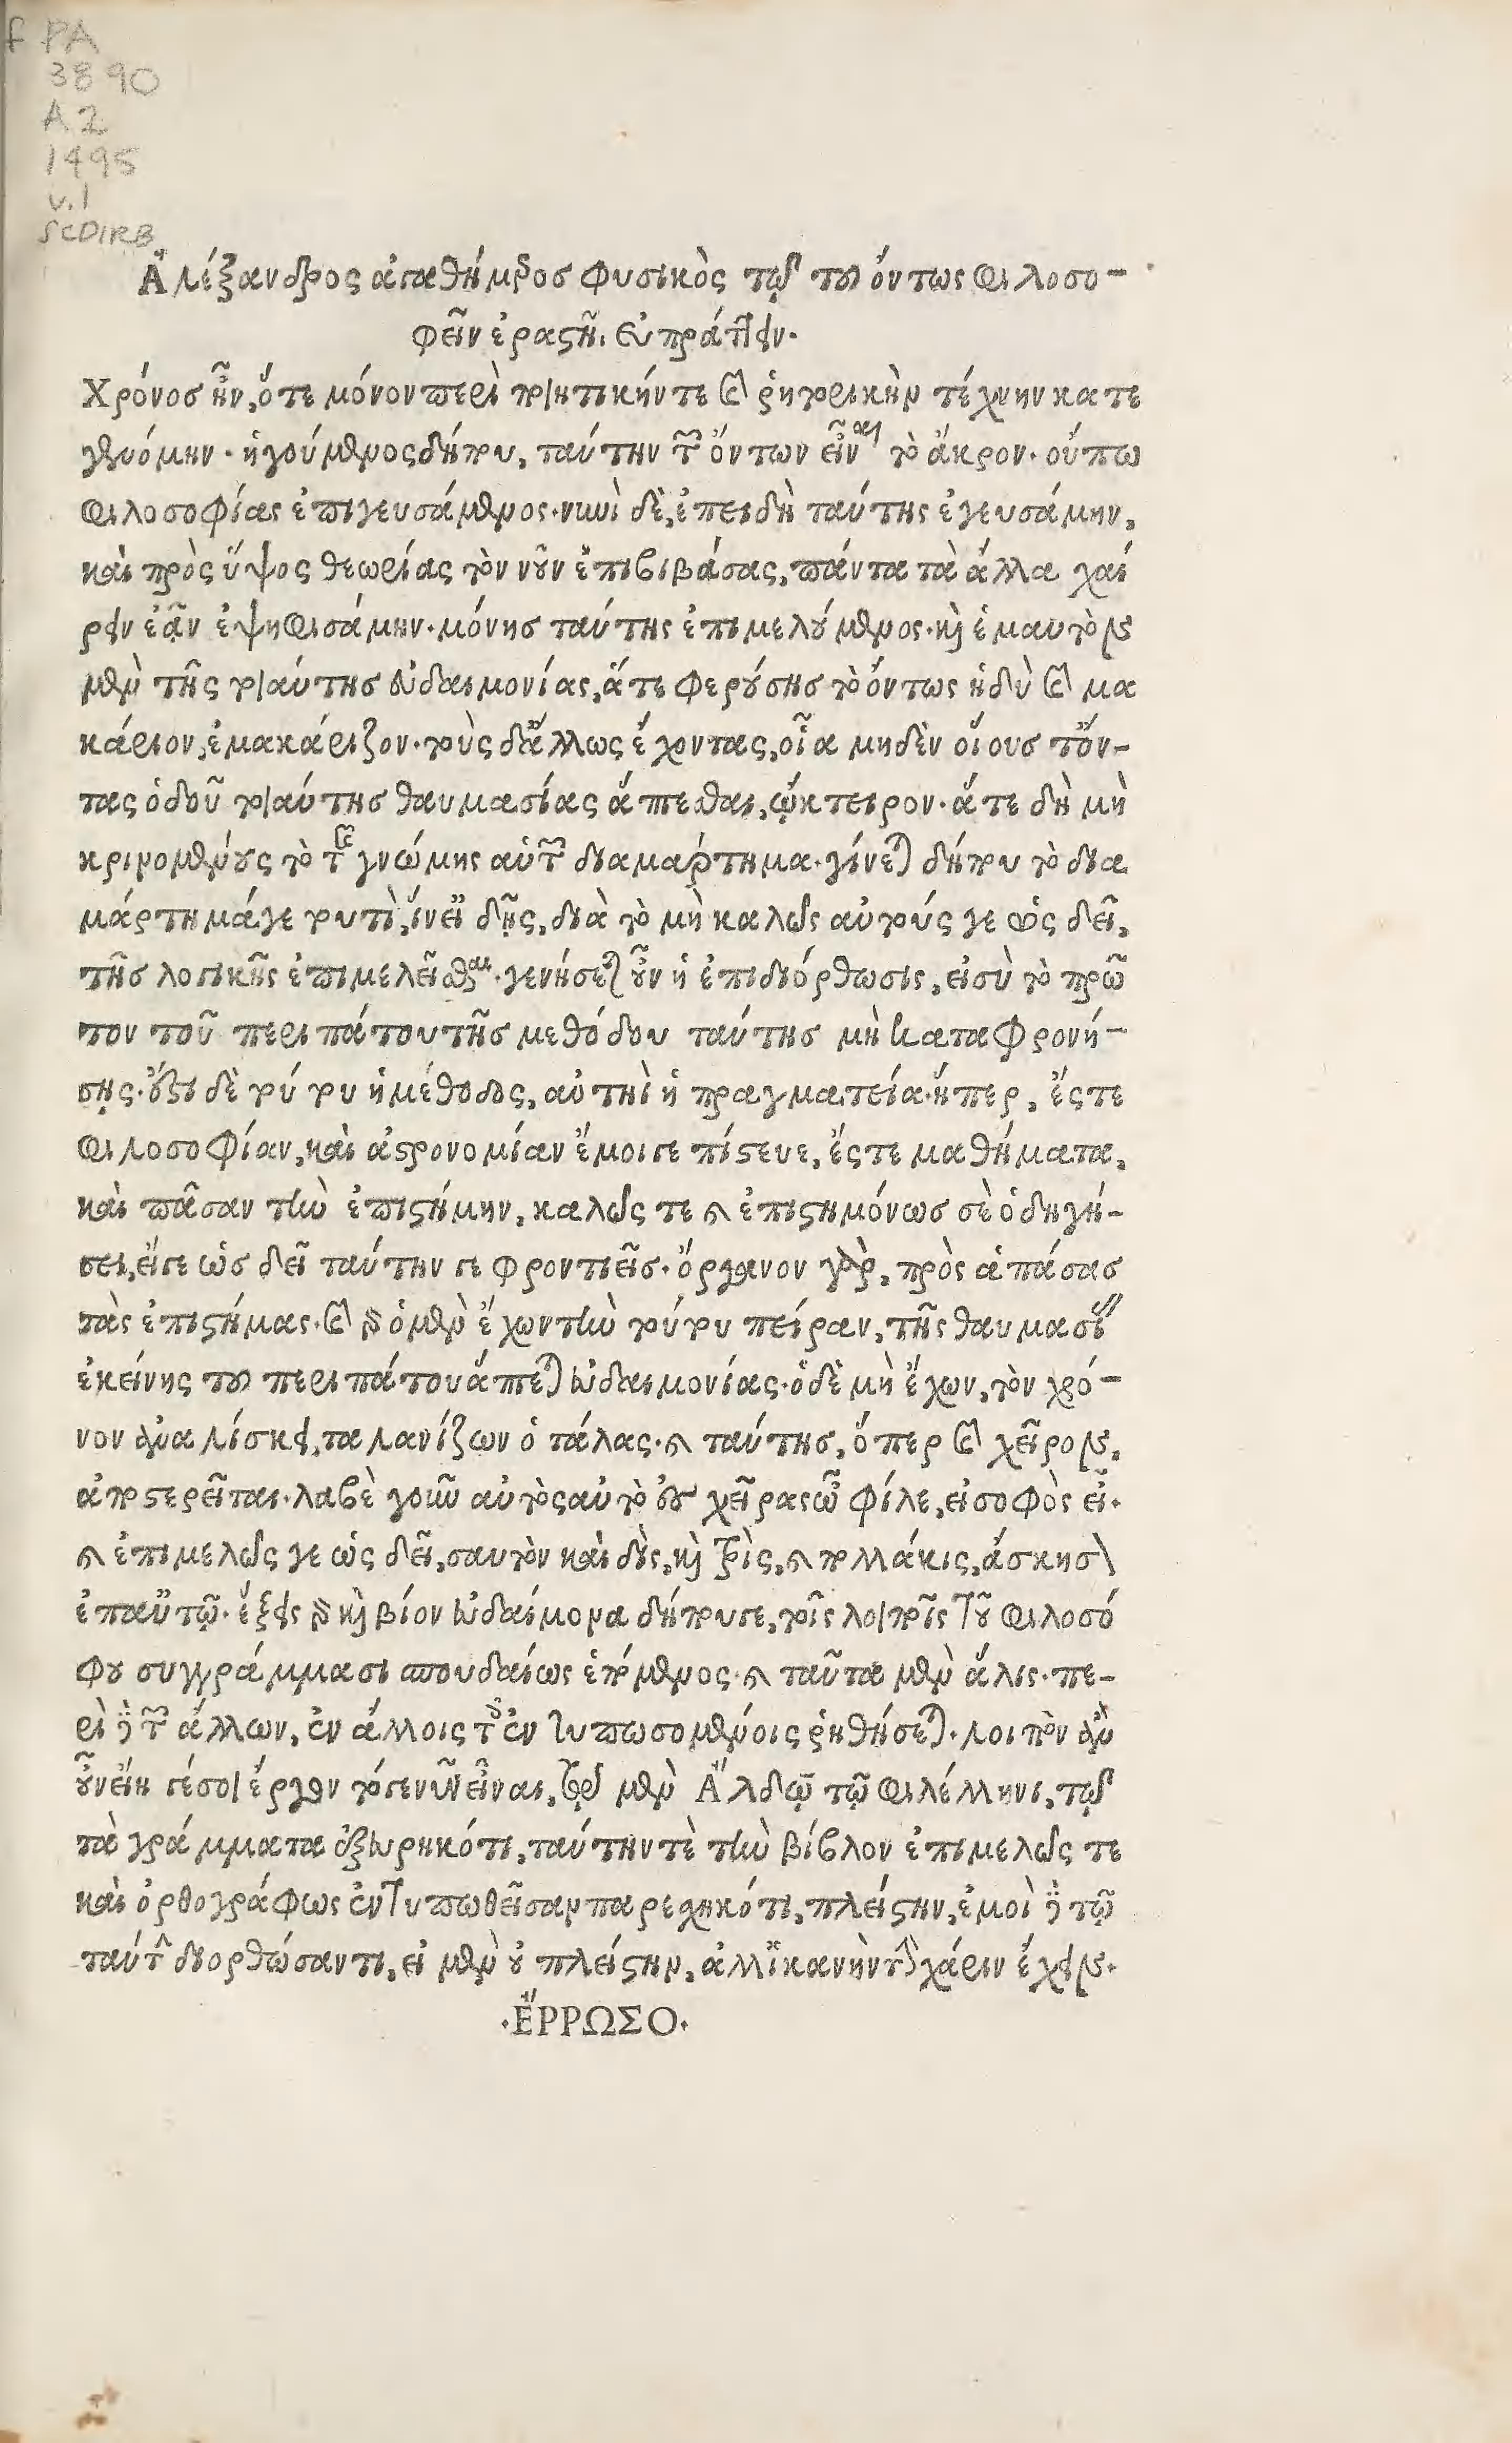 f PA
3890
A2
1495
v.1
SCDIRB
Ἀλέξανδρος ἀγαθήμερος φυσικὸς τῷ τοῦ ὄντως φιλοσο-
φεῖν ἐραστῇ. εὐ πράττειν.
Χρόνος ἦν, ὅτε μόνον περὶ ποιητικήν τε καὶ ῥητορικὴν τέχνην κατε
γενόμην· ἡγούμενος δήπου, ταύτην τῶν ὄντων εἶναι τὸ ἄκρον· οὔπω
φιλοσοφίας ἐπιγευσάμενος· νυνὶ δὲ, ἐπειδὴ ταύτης ἐγευσάμην,
καὶ πρὸς ὕψος θεωρίας τὸν νοῦν ἐπιβιβάσας, πάντα τὰ ἄλλα χαί
ρειν ἐᾶν ἐψηφισάμην· μόνης ταύτης ἐπιμελούμενος· καὶ ἐμαυτὸν
μὲν τῆς τοιαύτης εὐδαιμονίας, ἅτε φερούσης τὸ ὄντως ἡδὺ καὶ μα
κάριον, ἐμακάριζον· τοὺς δ' ἄλλως ἔχοντας, οἷα μηδὲν οἵους τ' ὄν-
τας ὁδοῦ τοιαύτης θαυμασίας ἅπτεσθαι, ᾤκτειρον· ἅτε δὴ μὴ
κρινομένους τὸ τῆς γνώμης αὐτῶν διαμάρτημα· γίνεται δήπου τὸ δια
μάρτημά γε τουτὶ, ἵν' εἰδῇς, διὰ τὸ μὴ καλῶς αὐτούς γε ὡς δεῖ,
τῆς λογικῆς ἐπιμελεῖσθαι· γενήσεται οὖν ἡ ἐπιδιόρθωσις, εἰ σὺ τὸ πρῶ
τον τοῦ περιπάτου τῆς μεθόδου ταύτης μὴ καταφρονή-
σῃς· ἔστι δὲ τούτου ἡ μέθοδος, αὐτηὶ ἡ πραγματεία· ἥπερ, ἔς τε
φιλοσοφίαν, καὶ ἀστρονομίαν ἔμοιγε πίστευε, ἔς τε μαθήματα,
καὶ πᾶσαν τὴν ἐπιστήμην, καλῶς τε καὶ ἐπιστημόνως σὲ ὁδηγή-
σει, εἴγε ὡς δεῖ ταύτην γε φροντιεῖς· ὄργανον γὰρ, πρὸς ἁπάσας
τὰς ἐπιστήμας· καὶ γὰρ ὁ μὲν ἔχων τὴν τούτου πεῖραν, τῆς θαυμασίας
ἐκείνης τοῦ περιπάτου ἅπτεται εὐδαιμονίας· ὁ δὲ μὴ ἔχων, τὸν χρό-
νον ἀναλίσκει, ταλανίζων ὁ τάλας· καὶ ταύτης, ὅπερ καὶ χεῖρον,
ἀποστερεῖται· λαβὲ γοῦν αὐτὸς αὐτὸ ἐς χεῖρας ὦ φίλε, εἰ σοφὸς εἶ·
καὶ ἐπιμελῶς γε ὡς δεῖ, σαυτὸν καὶ δὶς, καὶ τρὶς, καὶ πολλάκις, ἄσκησον
ἐπ' αὐτῷ· ἕξεις γὰρ καὶ βίον εὐδαίμονα δήπουγε, τοῖς λοιποῖς τοῦ φιλοσό
φου συγγράμμασι σπουδαίως ἑπόμενος· καὶ ταῦτα μὲν ἅλις· πε-
ρὶ δὲ τῶν ἄλλων, ἐν ἄλλοις τοῖς ἐντυπωσομένοις ῥηθήσεται· λοιπὸν ἂν
οὖν εἴη γέ σοι ἔργον τό γε νῦν εἶναι, τῷ μὲν Ἄλδῳ τῷ φιλέλληνι, τῷ
τὰ γράμματα ἐξευρηκότι, ταύτην τὲ τὴν βίβλον ἐπιμελῶς τε
καὶ ὀρθογράφως ἐντυπωθεῖσαν παρεσχηκότι, πλείστην, ἐμοὶ δὲ τῷ
ταύτην διορθώσαντι, εἰ μὲν οὐ πλείστην, ἀλλ' ἱκανὴν τὴν χάριν ἔχειν.
·ἜΡΡΩΣΟ·